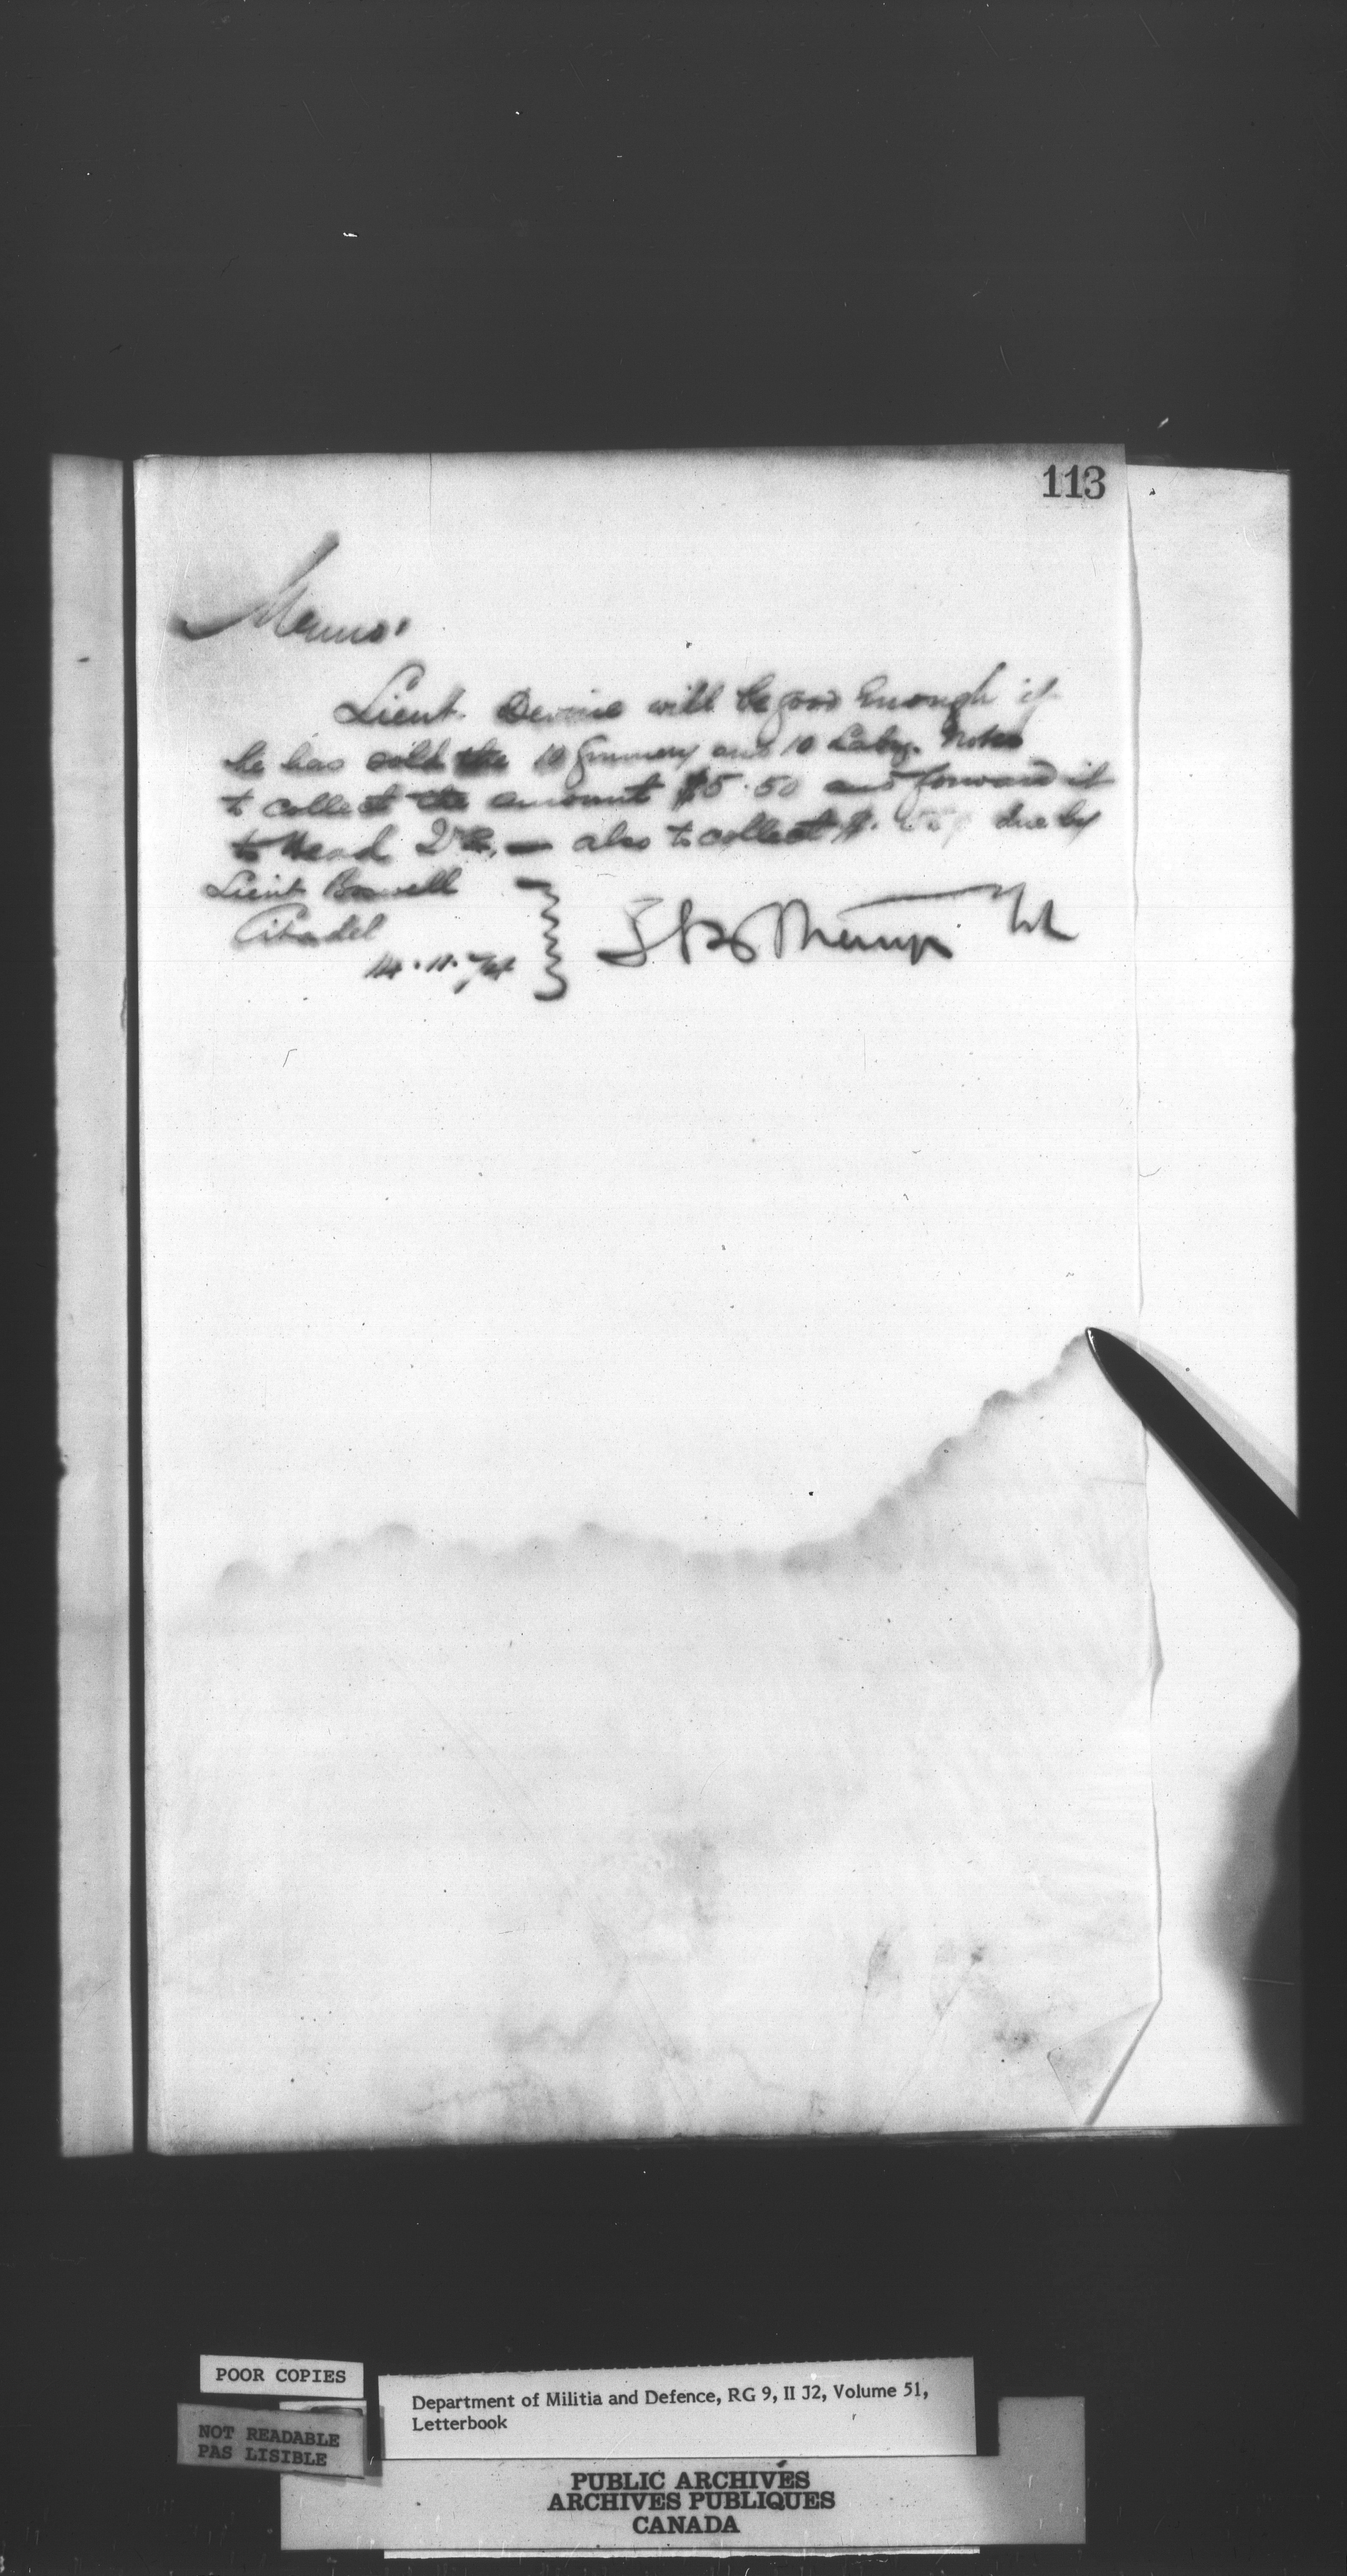 113
Memo:
Lieut. Devine will be good enough if
he has sold the 10 Gunnery and 10 Laby. Notes
to collect the amount $5.50 and forward it
to Head Qrs. — also to collect $. due by
Lieut Boswell
Citadel
14.11.74
POOR COPIES
NOT READABLE
PAS LISIBLE
Department of Militia and Defence, RG 9, II J2, Volume 51,
Letterbook
PUBLIC ARCHIVES
ARCHIVES PUBLIQUES
CANADA